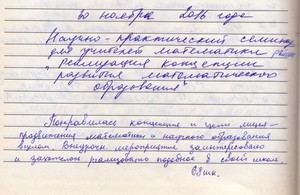 30 ноября 2016 года
Научно-практический семинар
для учителей математики района
"Реализация концепции
развития математического
образования"
Понравилась концепция и цели лицея -
продвижения математики и научного образования
в целом. Внедрон. мероприятие заинтересовало
и захотелось реализовать подобное в своей школе.